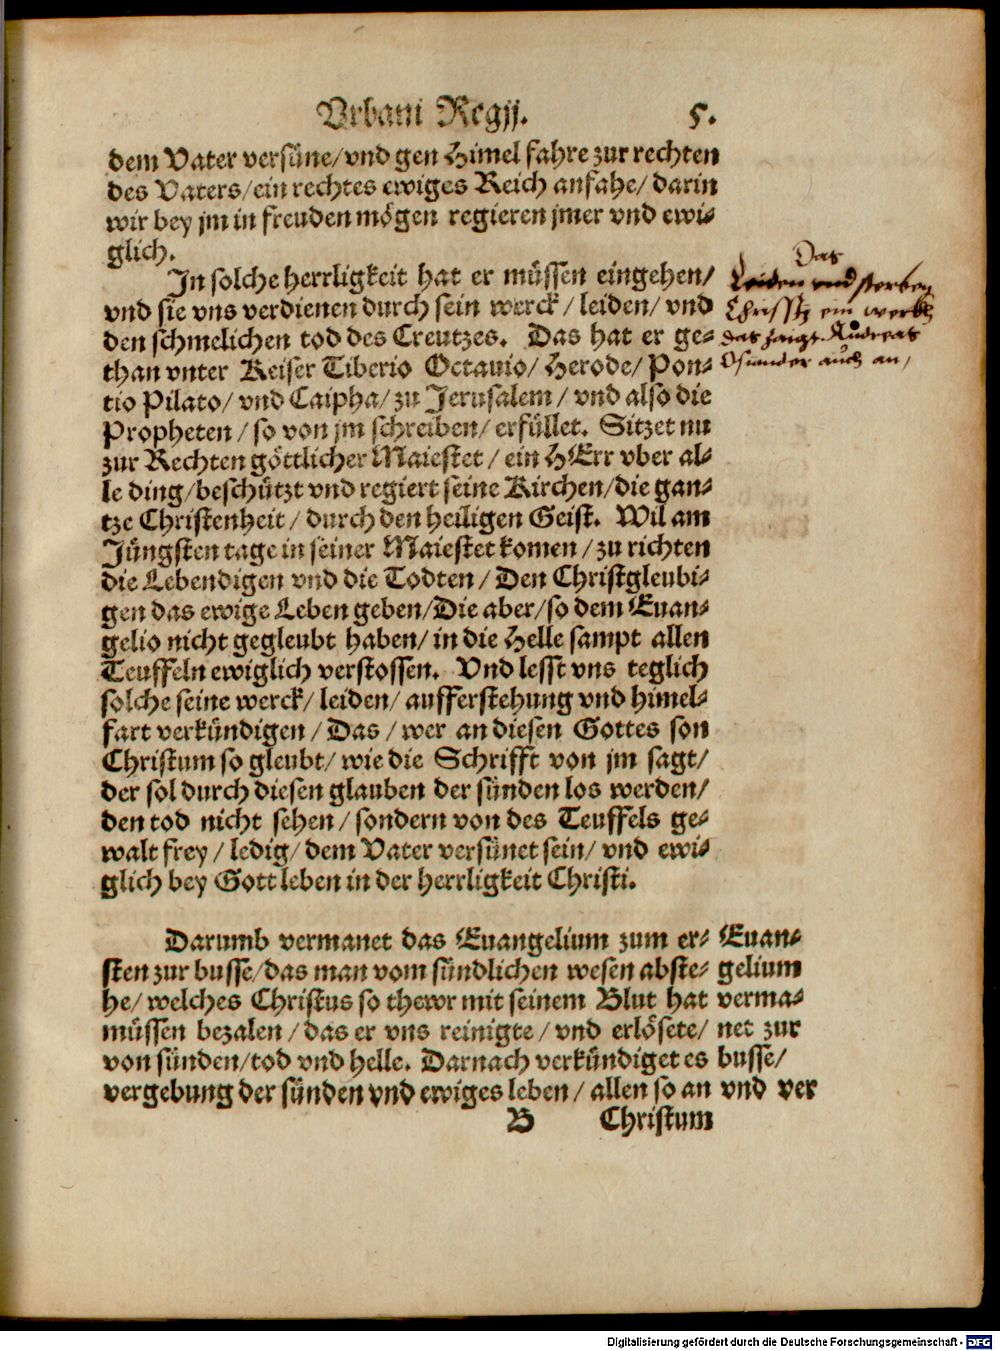 Vrbani Regij. 5.
dem Vater versüne/vnd gen Himel fahre zur rechten
des Vaters/ein rechtes ewiges Reich anfahe/darin
wir bey jm in freuden mögen regieren jmer vnd ewi-
glich.
In solche herrligkeit hat er müssen eingehen/
vnd sie vns verdienen durch sein werck/leiden/vnd
den schmelichen tod des Creutzes. Das hat er ge-
than vnter Keiser Tiberio Octauio/Herode/Pon-
tio Pilato/vnd Caipha/zu Jerusalem/vnd also die
Propheten/so von jm schreiben/erfüllet. Sitzet nu
zur Rechten göttlicher Maiestet/ein HErr vber al-
le ding/beschützt vnd regiert seine Kirchen/die gan-
tze Christenheit/durch den heiligen Geist. Wil am
Jüngsten tage in seiner Maiestet komen/zu richten
die Lebendigen vnd die Todten/Den Christgleubi-
gen das ewige Leben geben/Die aber/so dem Euan-
gelio nicht gegleubt haben/in die Helle sampt allen
Teuffeln ewiglich verstossen. Vnd lesst vns teglich
solche seine werck/leiden/aufferstehung vnd himel-
fart verkündigen/Das/wer an diesen Gottes son
Christum so gleubt/wie die Schrifft von jm sagt/
der sol durch diesen glauben der sünden los werden/
den tod nicht sehen/sondern von des Teuffels ge-
walt frey/ledig/dem Vater versünet sein/vnd ewi-
glich bey Gott leben in der herrligkeit Christi.
Das
Leiden vnd sterben
Christj ein werck
das zaigt Anderas
Osiander auch an,
Darumb vermanet das Euangelium zum er-
sten zur busse/das man vom sündlichen wesen abste-
he/welches Christus so thewr mit seinem Blut hat
müssen bezalen/das er vns reinigte/vnd erlösete/
von sünden/tod vnd helle. Darnach verkündiget es
vergebung der sünden vnd ewiges leben/allen so an
Euan-
gelium
verma-
net zur
busse/
vnd ver
B Christum
Digitalisierung gefördert durch die Deutsche Forschungsgemeinschaft - DFG